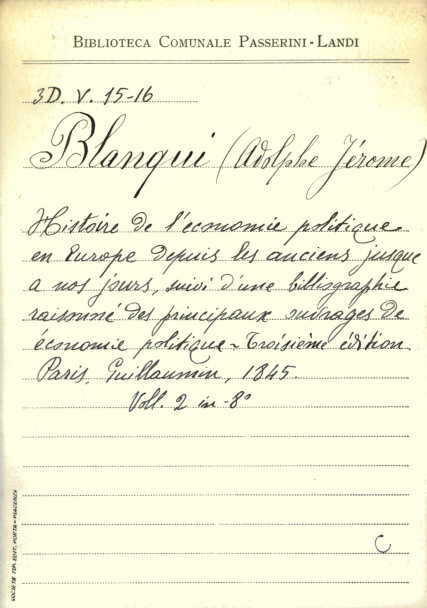 BIBLIOTECA COMUNALE PASSERINI-LANDI
3D. V. 15-16
Blanqui (Adolphe Jérome)
Histoire de l'économie politique
en Europe depuis les anciens jusque
a nos jours, suivi d'une bibliographie
raisonné des principaux ouvrages de
économie politique - Troisième édition
Paris, Guillaumin, 1845.
Voll. 2 in-8°
C
SOCIETÀ TIP. EDIT. PORTA - PIACENZA